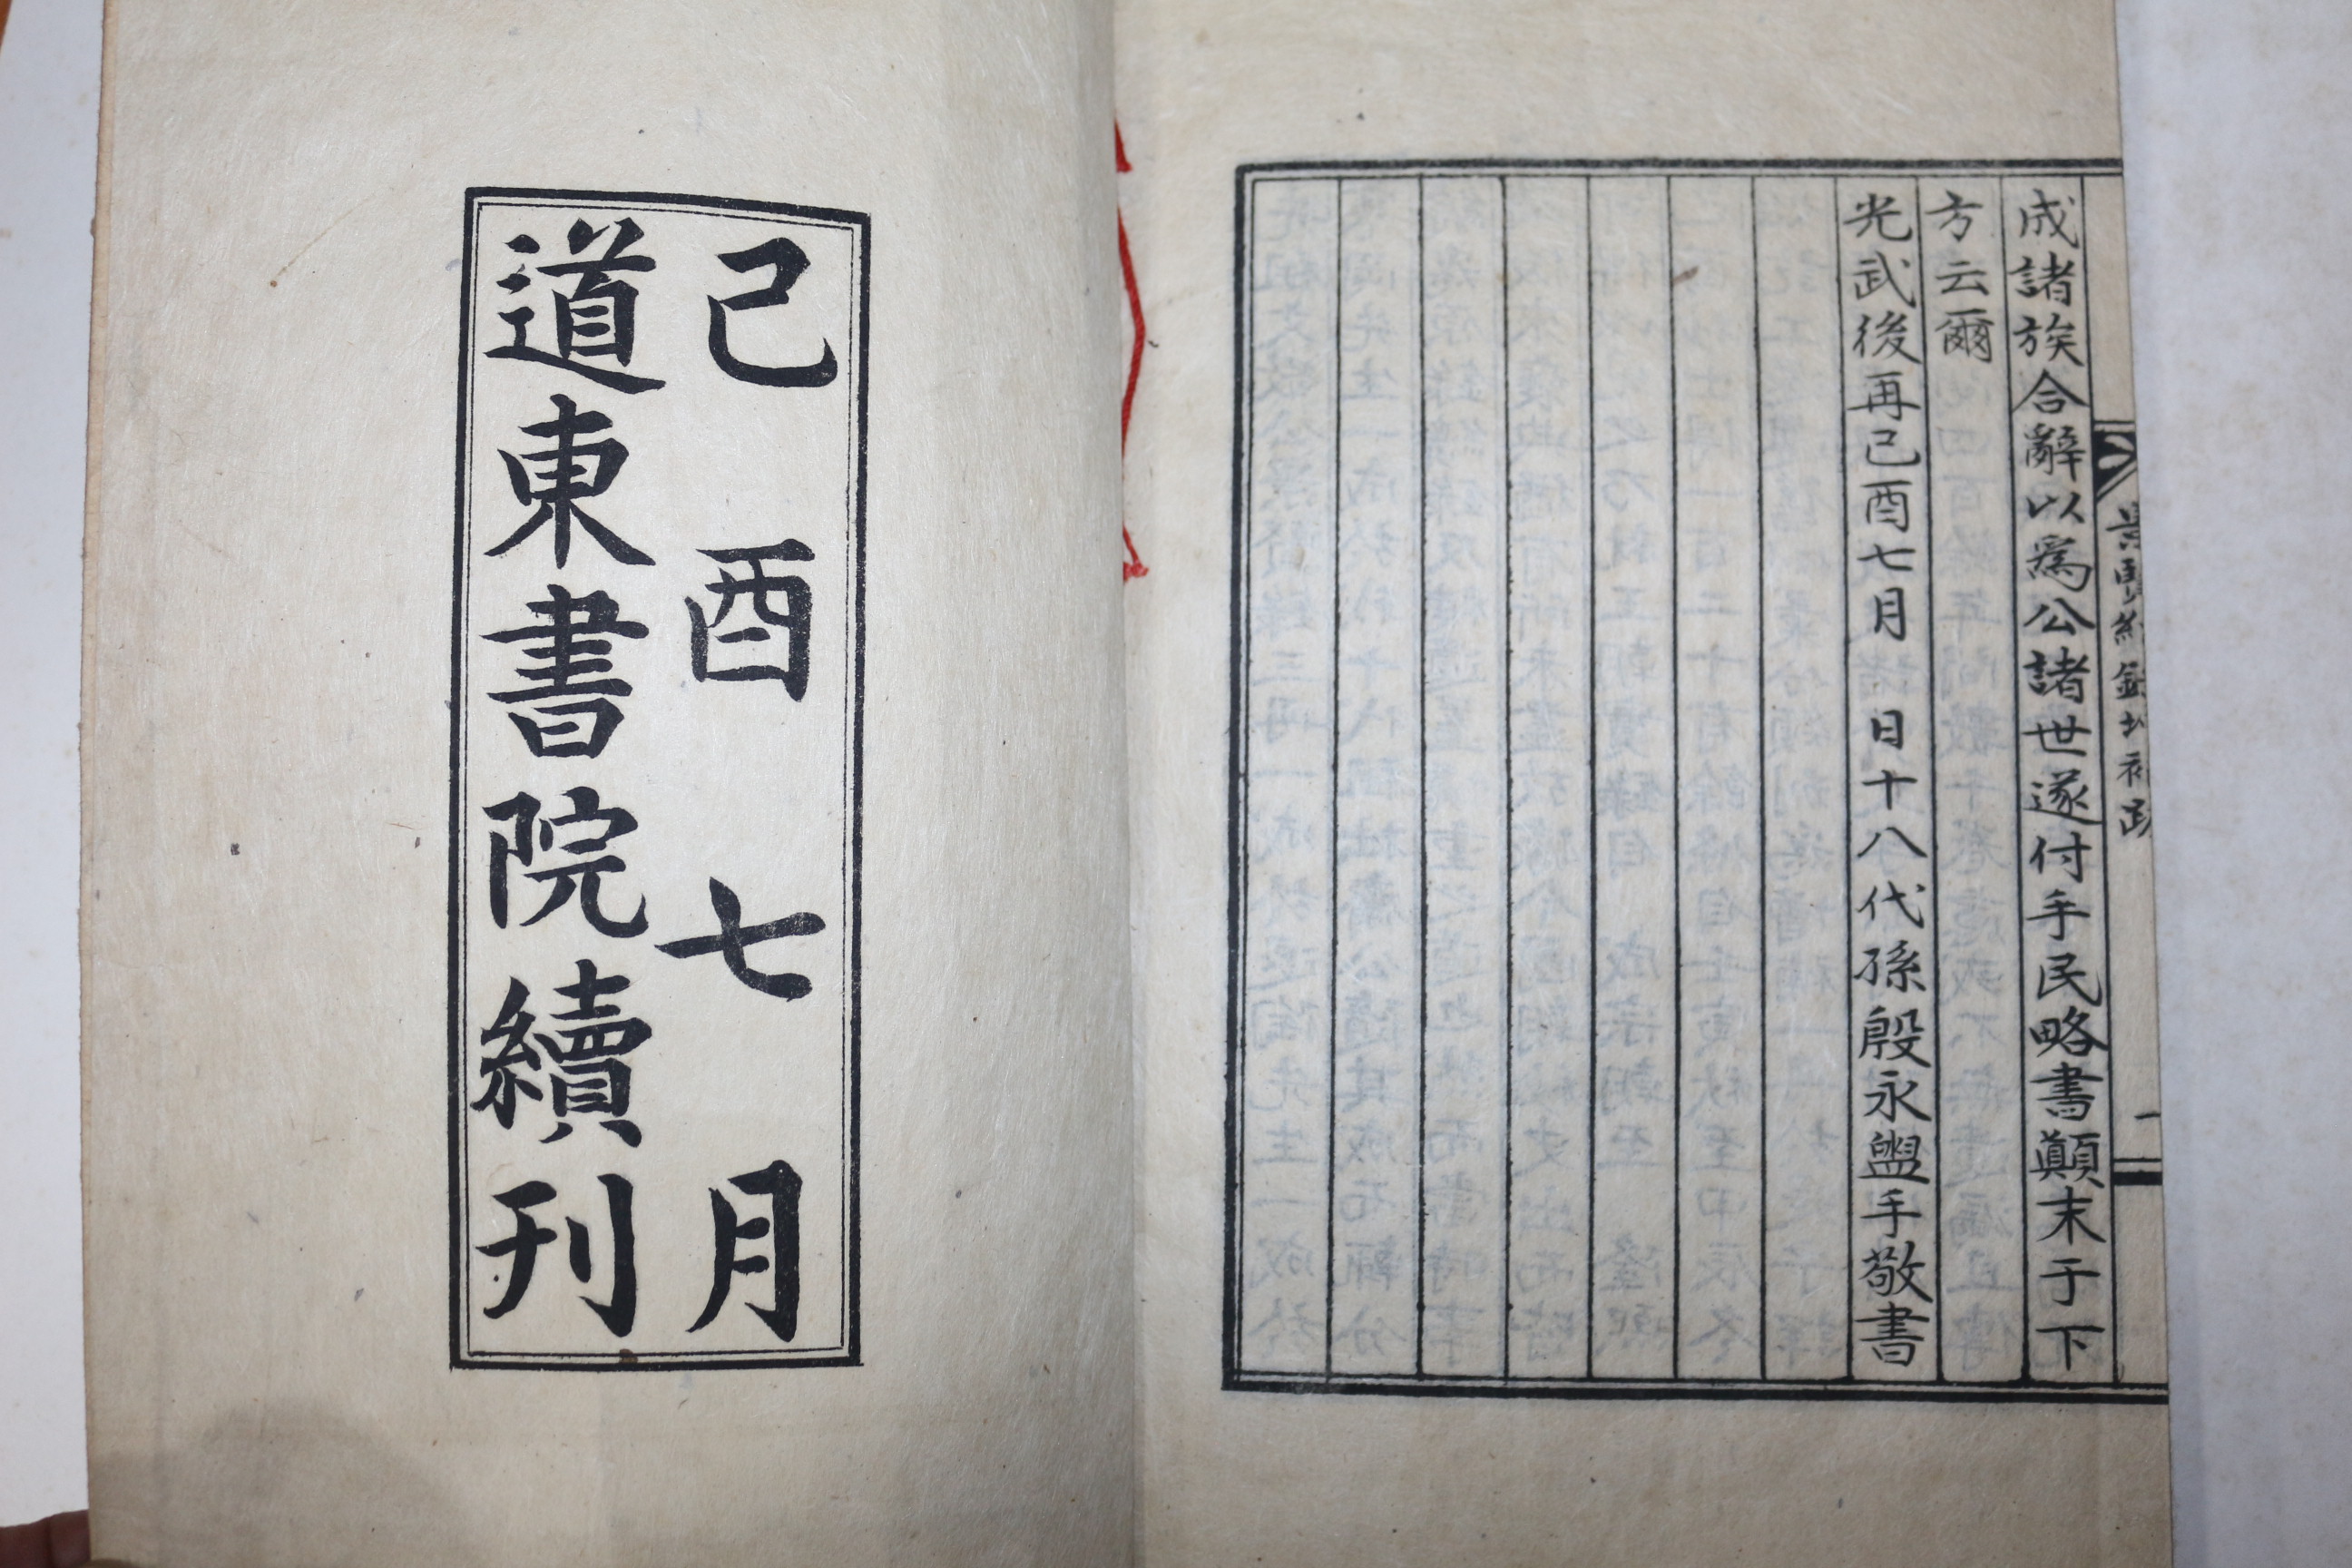 成諸族合辭以爲公諸世遂付手民略書顚末于下
方云爾
光武後再己酉七月 日十八代孫殷永盥手敬書
己酉七月
道東書院續刊